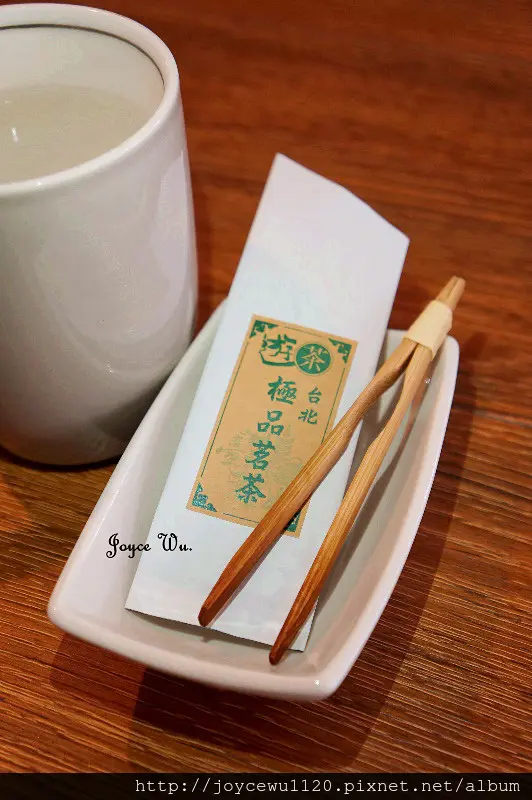 遊茶
台北
極品茗茶
Joyce Wu.
http://joycewu1120.pixnet.net/album